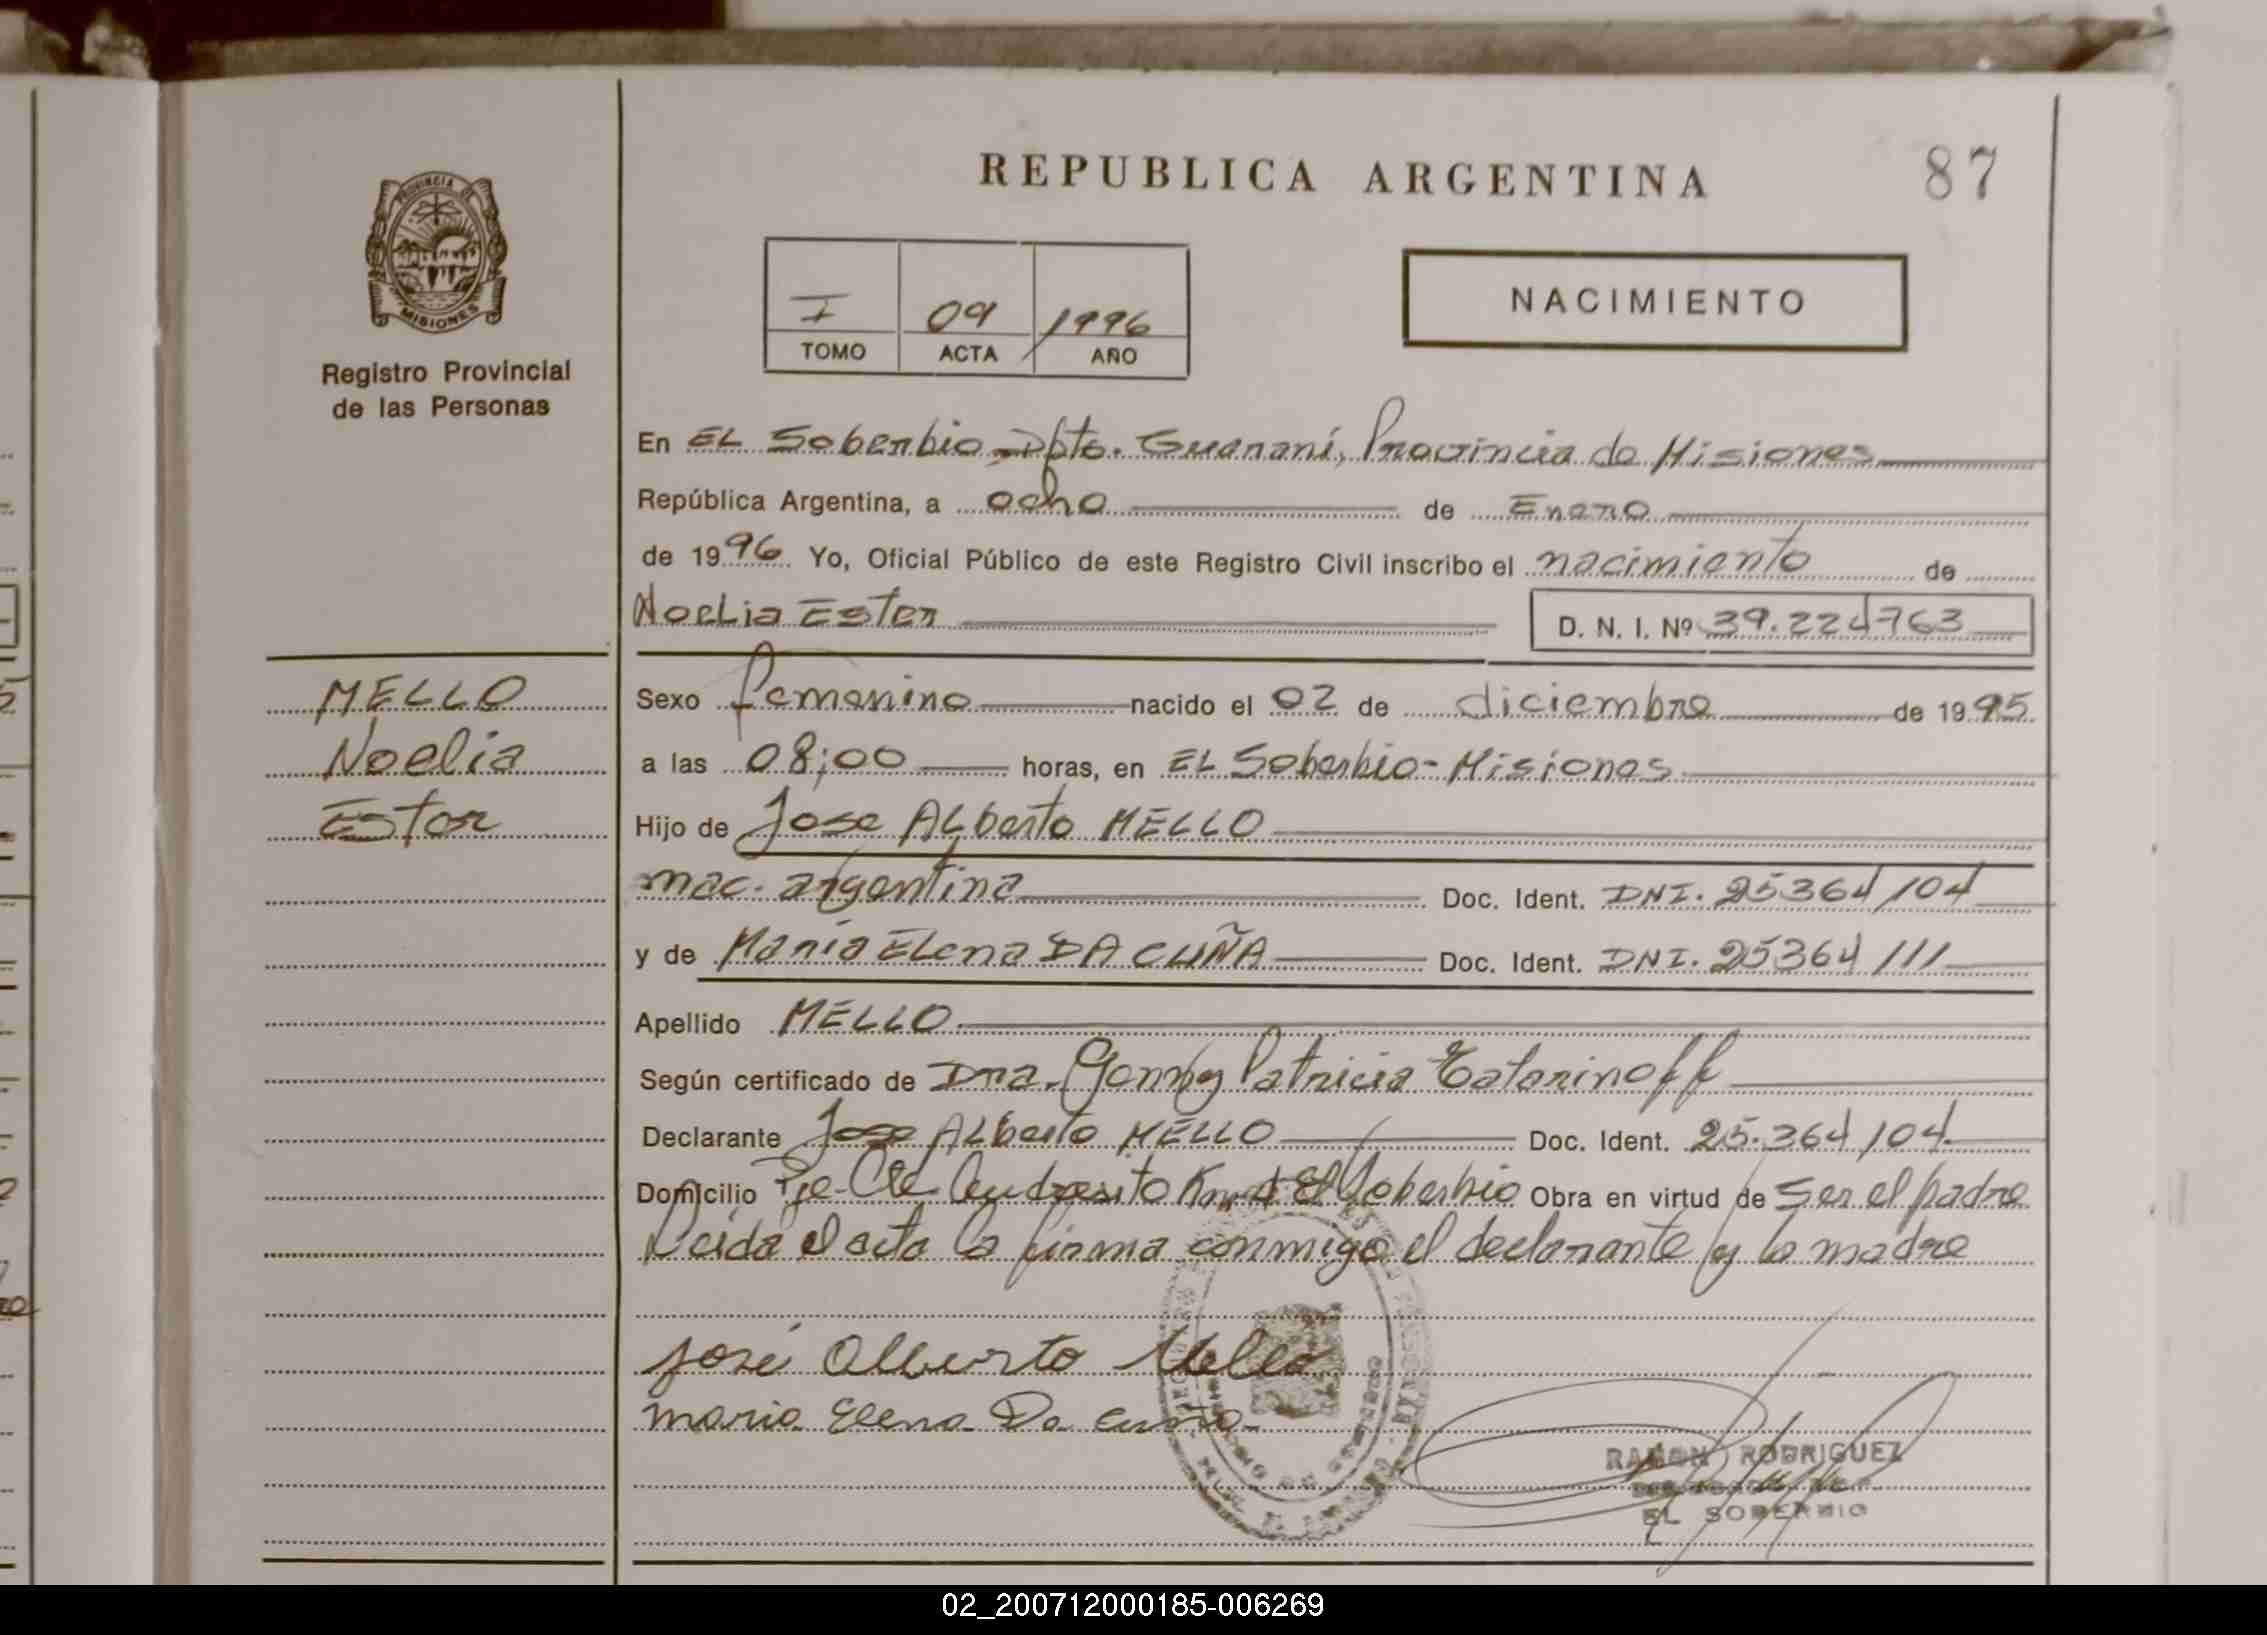 REPUBLICA ARGENTINA
87
PROVINCIA DE
MISIONES
Registro Provincial
de las Personas
I 09 1996
TOMO ACTA AÑO
NACIMIENTO
En EL Soberbio - Dpto. Guaraní, Provincia de Misiones
República Argentina, a ocho de Enero
de 1996 Yo, Oficial Público de este Registro Civil inscribo el nacimiento de
Noelia Ester D. N. I. Nº 39.224763
MELLO
Noelia
Ester
Sexo femenino nacido el 02 de diciembre de 1995
a las 08;00 horas, en EL Soberbio - Misiones
Hijo de Jose ALberto MELLO
nac. argentina Doc. Ident. DNI. 25364/104
y de María ELena DA CUÑA Doc. Ident. DNI. 25364/111
Apellido MELLO
Según certificado de Dra. Patricia Catarinoff
Declarante Jose ALberto MELLO Doc. Ident. 25.364/104
Domicilio Pje. Cte. Andresito Km El Soberbio Obra en virtud de ser el padre
Leida el acta la firma conmigo el declarante y la madre
José Alberto Mello
Maria Elena Da Cuña
RAMON RODRIGUEZ
EL SOBERBIO
02_200712000185-006269